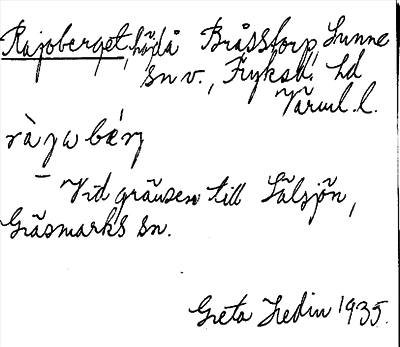 Rajoberget, höjd å Bråsstorp, Sunne
sn v., Fryksd. hd
Värml. l.
Vid gränsen till Sälsjön,
Gräsmarks sn.
Greta Hedin 1935.